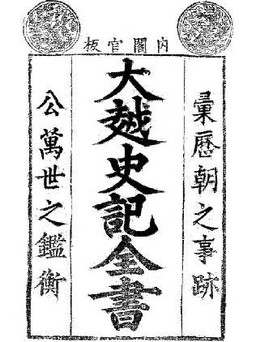 內閣官板
彙歷朝之事跡
大越史記全書
公萬世之鑑衡